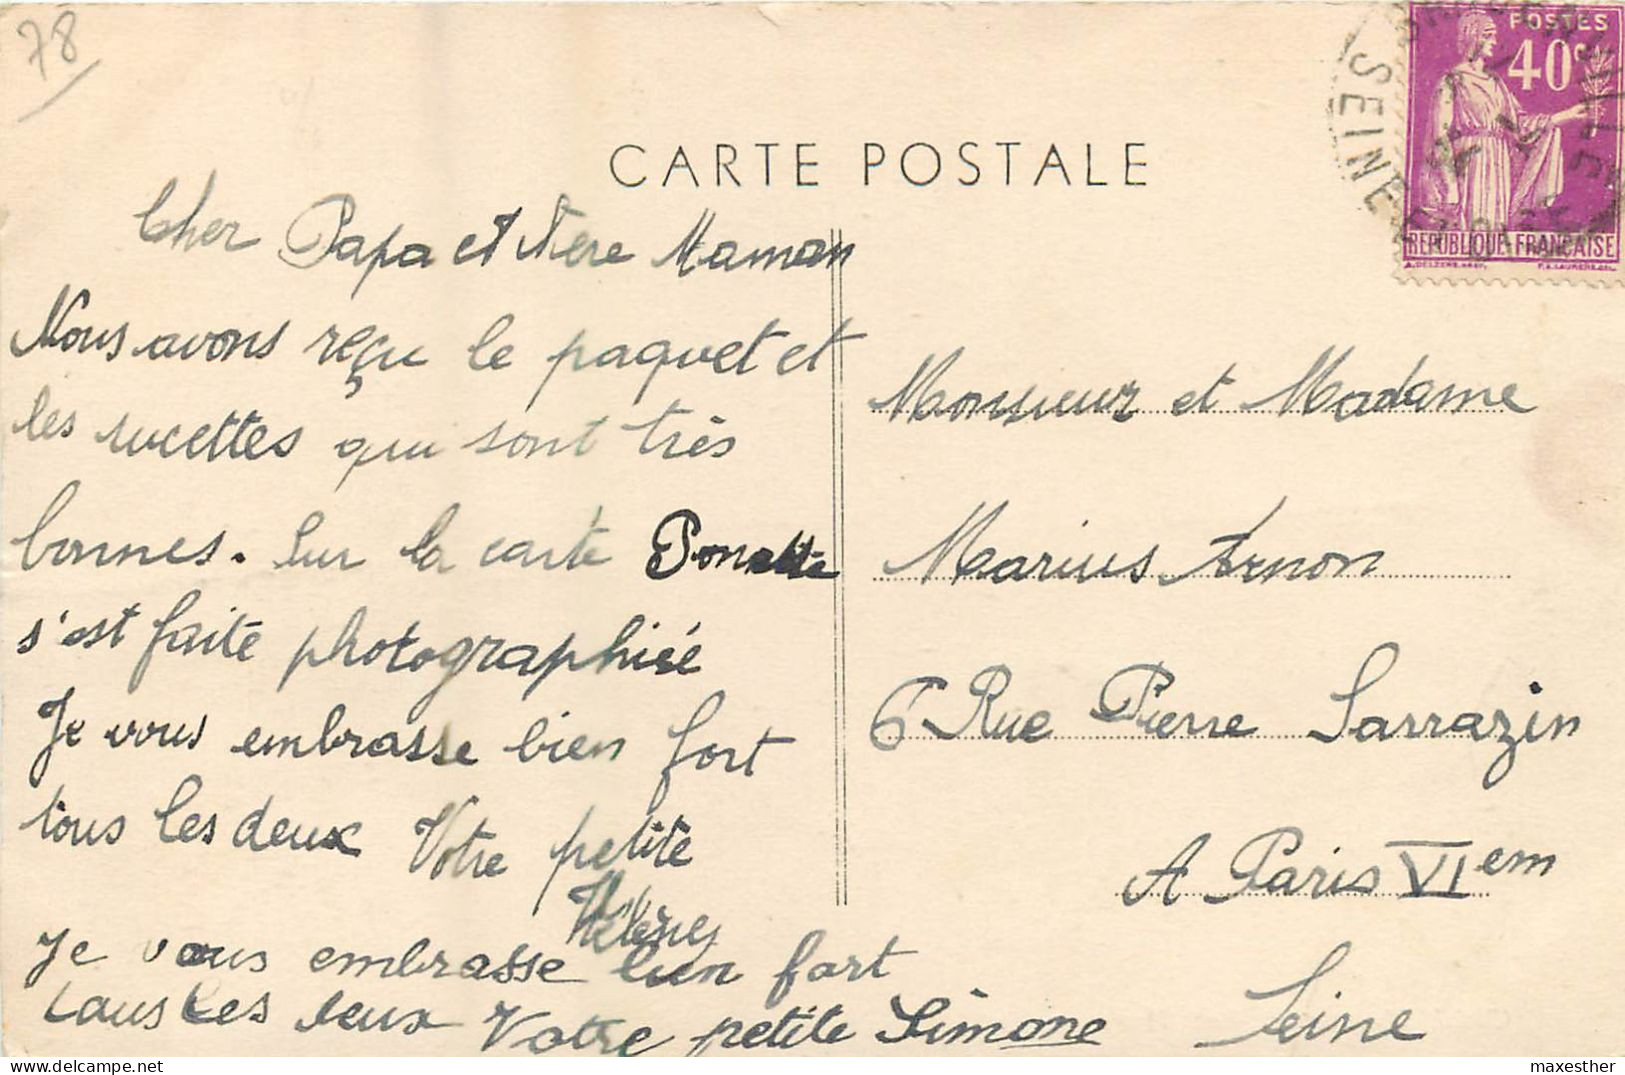 78
CARTE POSTALE
POSTES
40c
REPUBLIQUE FRANÇAISE
SEINE
Cher Papa et Mere Maman
Nous avons reçu le paquet et
les sucettes qui sont très
bonnes. Sur la carte Ponette
s'est faite photographiée
Je vous embrasse bien fort
tous les deux Votre petite
Hélène
Je vous embrasse bien fort
tous les deux Votre petite Simone
Monsieur et Madame
Marius Arnon
6 Rue Pierre Sarrazin
A Paris VIem
Seine
maxesther